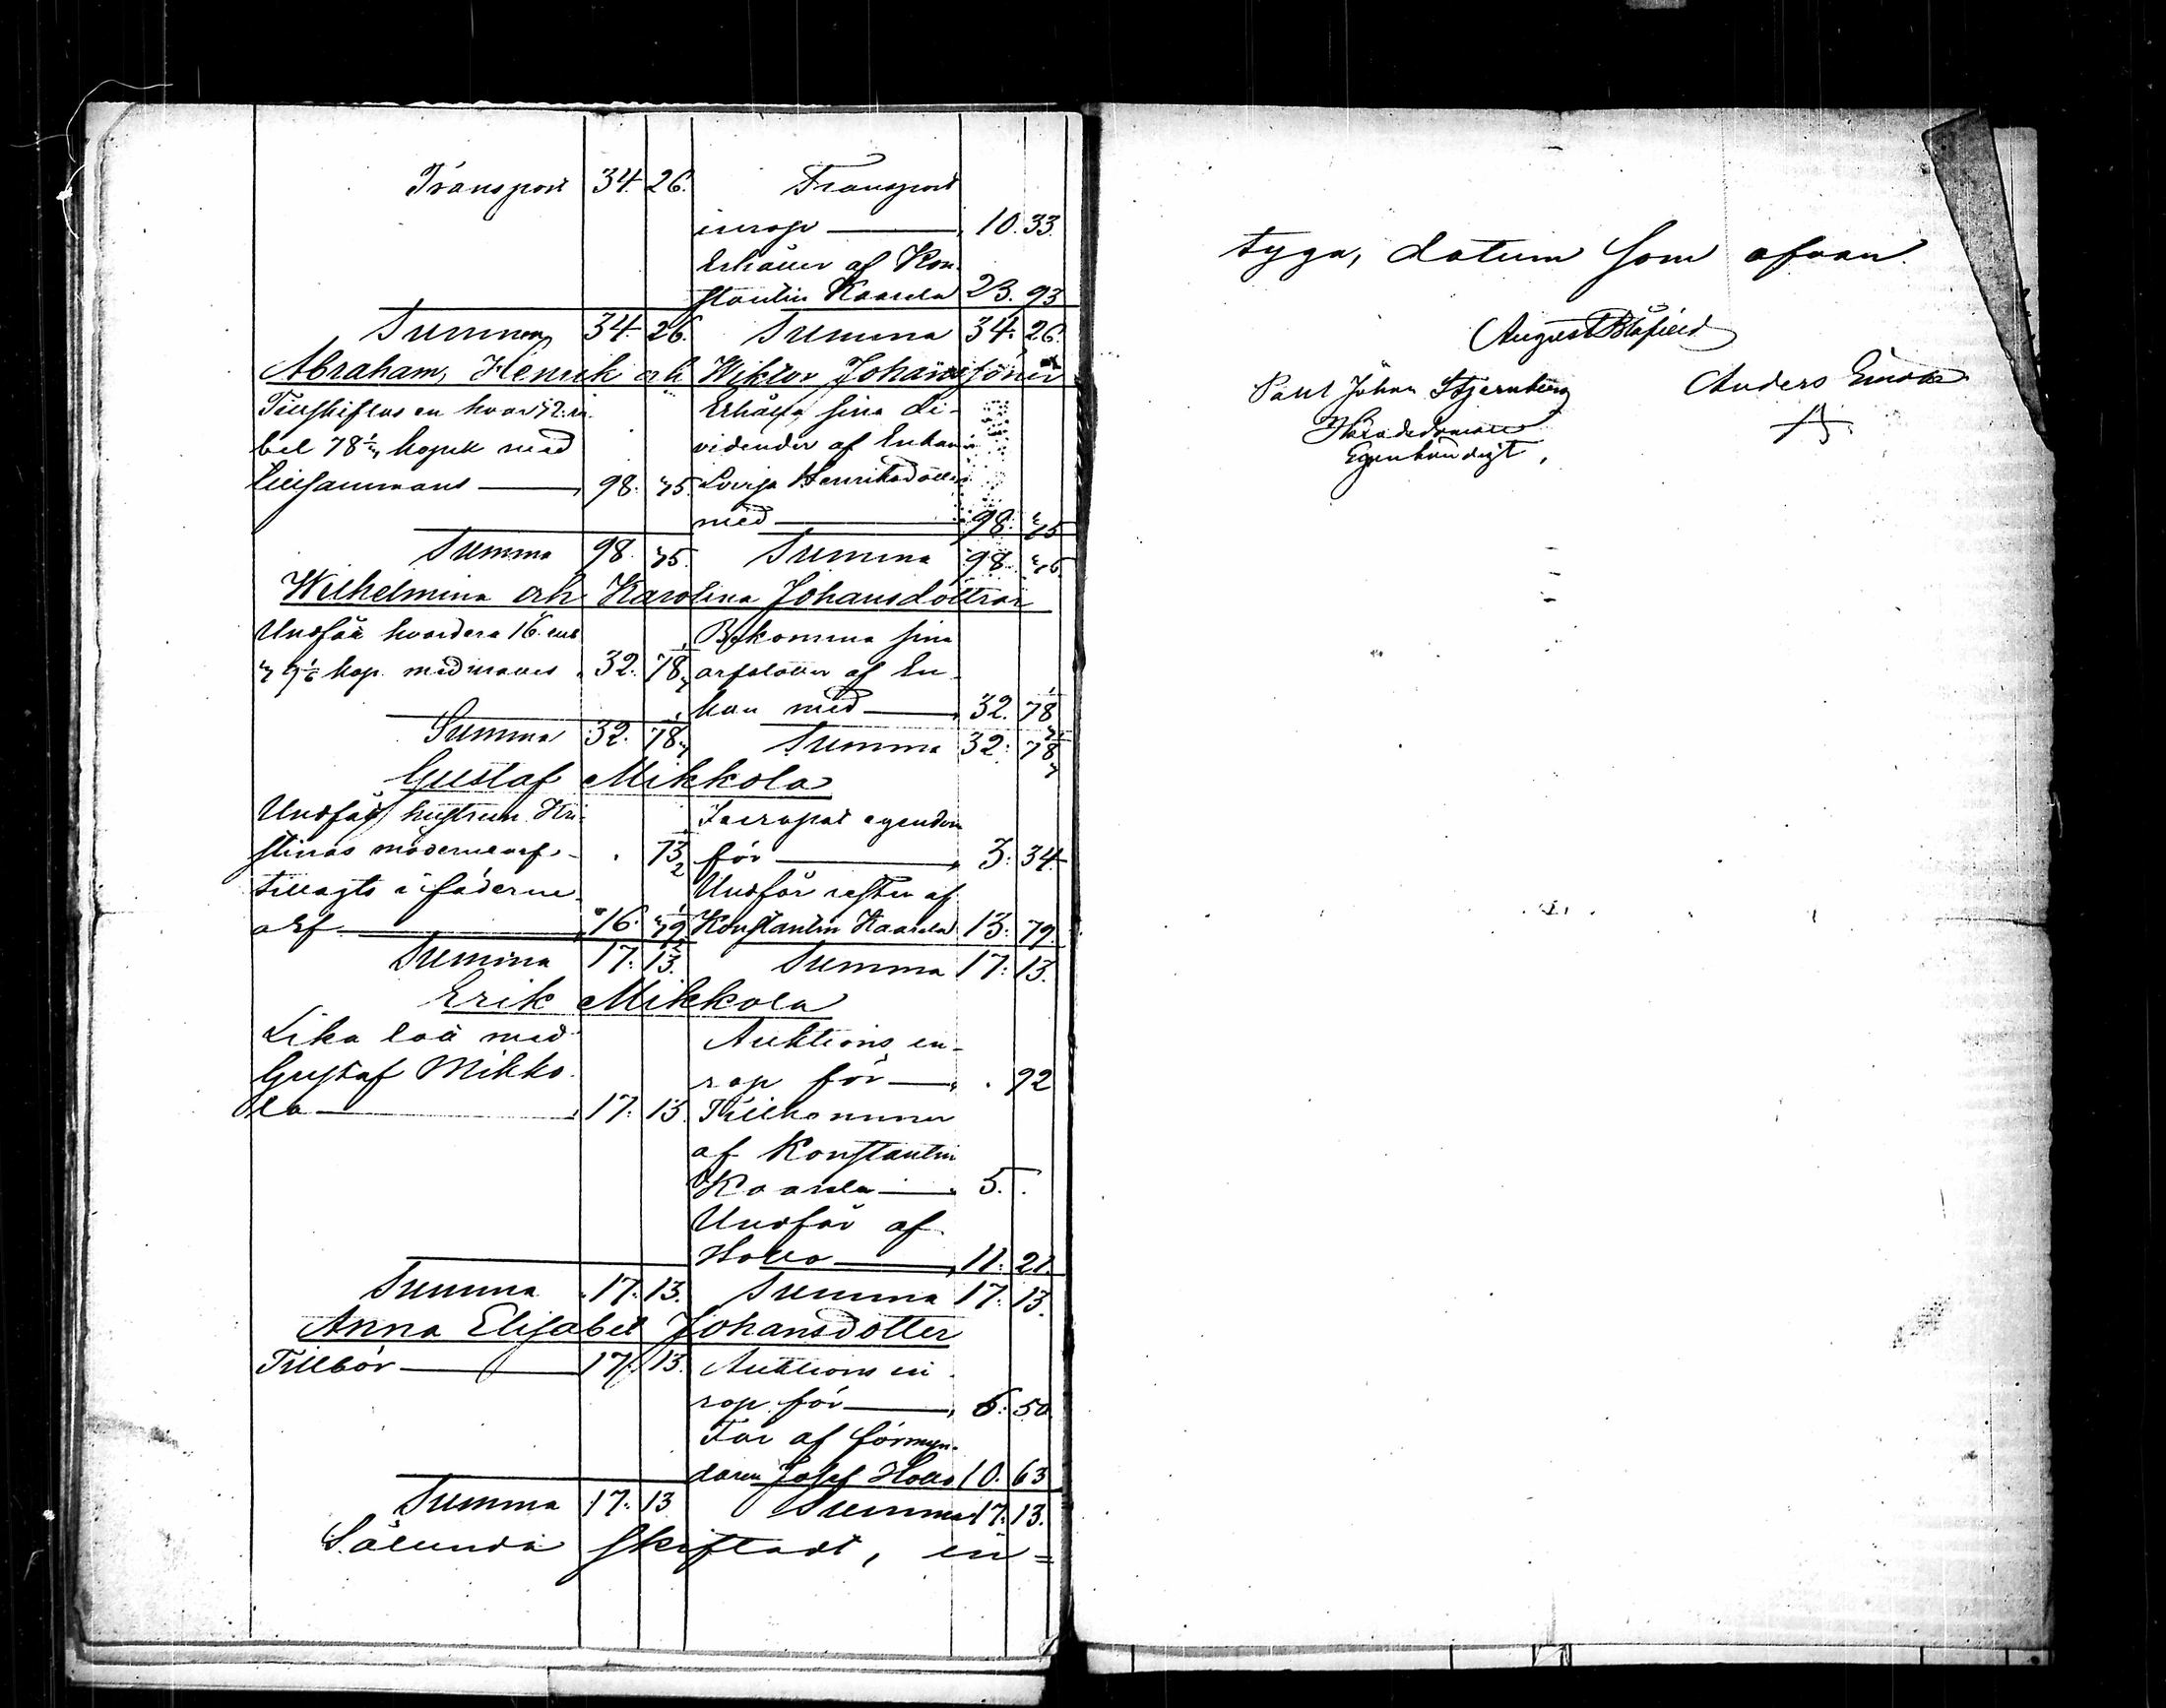 Transport 34. 26. Transport
inrop 10. 33.
Erhåller af Kon-
stantin Kaarela 23. 93
Summa 34. 26. Summa 34. 26.
Abraham, Henrik och Wiktor Johanssöner
Tillskiftas en hvar 12. ru-
bel 78 kopek med
tillsammans 98. 75.
Erhålla sina di-
vidender af Enkan
Lovisa Henriksdotter
med 98. 75
Summa 98. 75. Summa 98. 75
Wilhelmina och Karolina Johansdöttrar
Undfåa hvardera 16. rub
kop. med 32. 78
Bekomma sina
arfslotter af En-
kan med 32. 78
Summa 32. 78 Summa 32. 78
Gustaf Mikkola
Undfår hustrun Kri-
stinas mödernearf 73
tillagts i fäderne
arf 16. 79
Inropat egendom
för 3. 34.
Undfår resten af
Konstantin Kaarela 13. 79.
Summa 17. 13. Summa 17. 13.
Erik Mikkola
Lika lott med
Gustaf Mikko-
la 17. 13.
Auktions in-
rop för 92
Tillkommer
af Konstantin
Kaarela 5.
Undfår af
Hollo 11. 21.
Summa 17. 13. Summa 17. 13.
Anna Elisabet Johansdotter
Tillbör 17. 13. Auktions in
rop för 6. 50
Tar af förmyn-
daren Josef Hollo 10. 63
Summa 17. 13 Summa 17. 13.
Sålunda skiftadt, in=
tyga, datum som ofvan.
August Blåfield
Paul Johan Stjernberg
Häradsdomare
Egenhändigt.
Anders